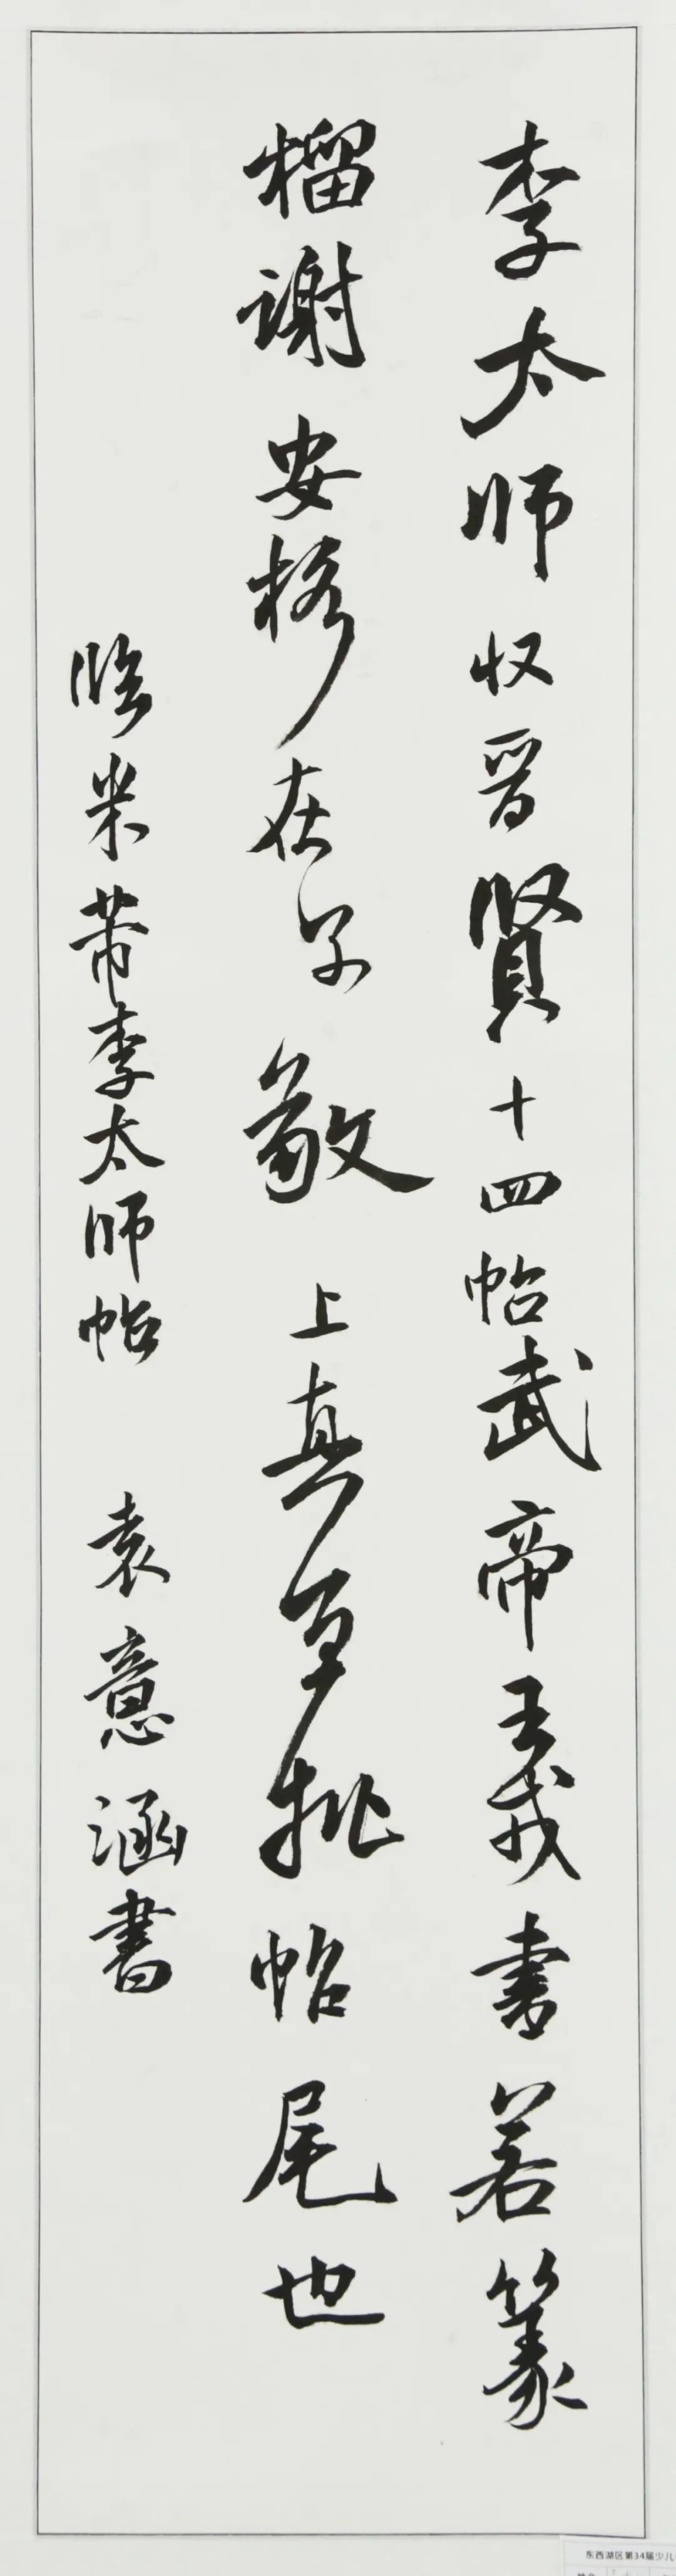 李太师收晋賢十四帖武帝王戎書若篆
榴谢安格在子敬上真宜批帖尾也
临米芾李太师帖 袁意涵書
东西湖区第34届少儿